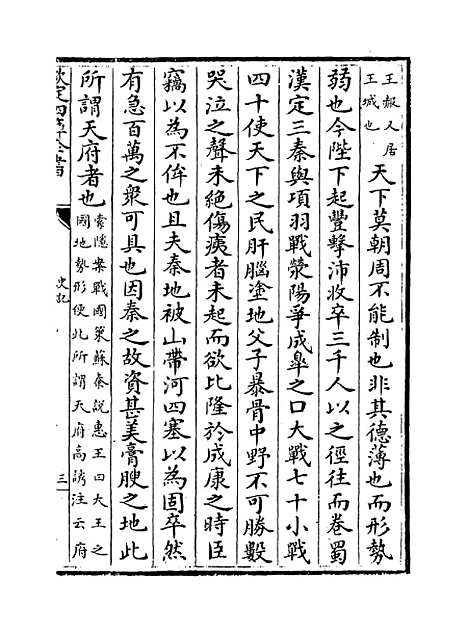 王赧又居
王城也
天下莫朝周不能制也非其德薄也而形勢
弱也今陛下起豐擊沛收卒三千人以之徑往而卷蜀
漢定三秦與項羽戰滎陽爭成臯之口大戰七十小戰
四十使天下之民肝腦塗地父子暴骨中野不可勝數
哭泣之聲未絕傷痍者未起而欲比隆於成康之時臣
竊以為不侔也且夫秦地被山帶河四塞以為固卒然
有急百萬之衆可具也因秦之故資甚美膏腴之地此
所謂天府者也
索隱案戰國策蘇秦說惠王曰大王之
國地勢形便此所謂天府高誘注云府
欽定四庫全書
史記
三